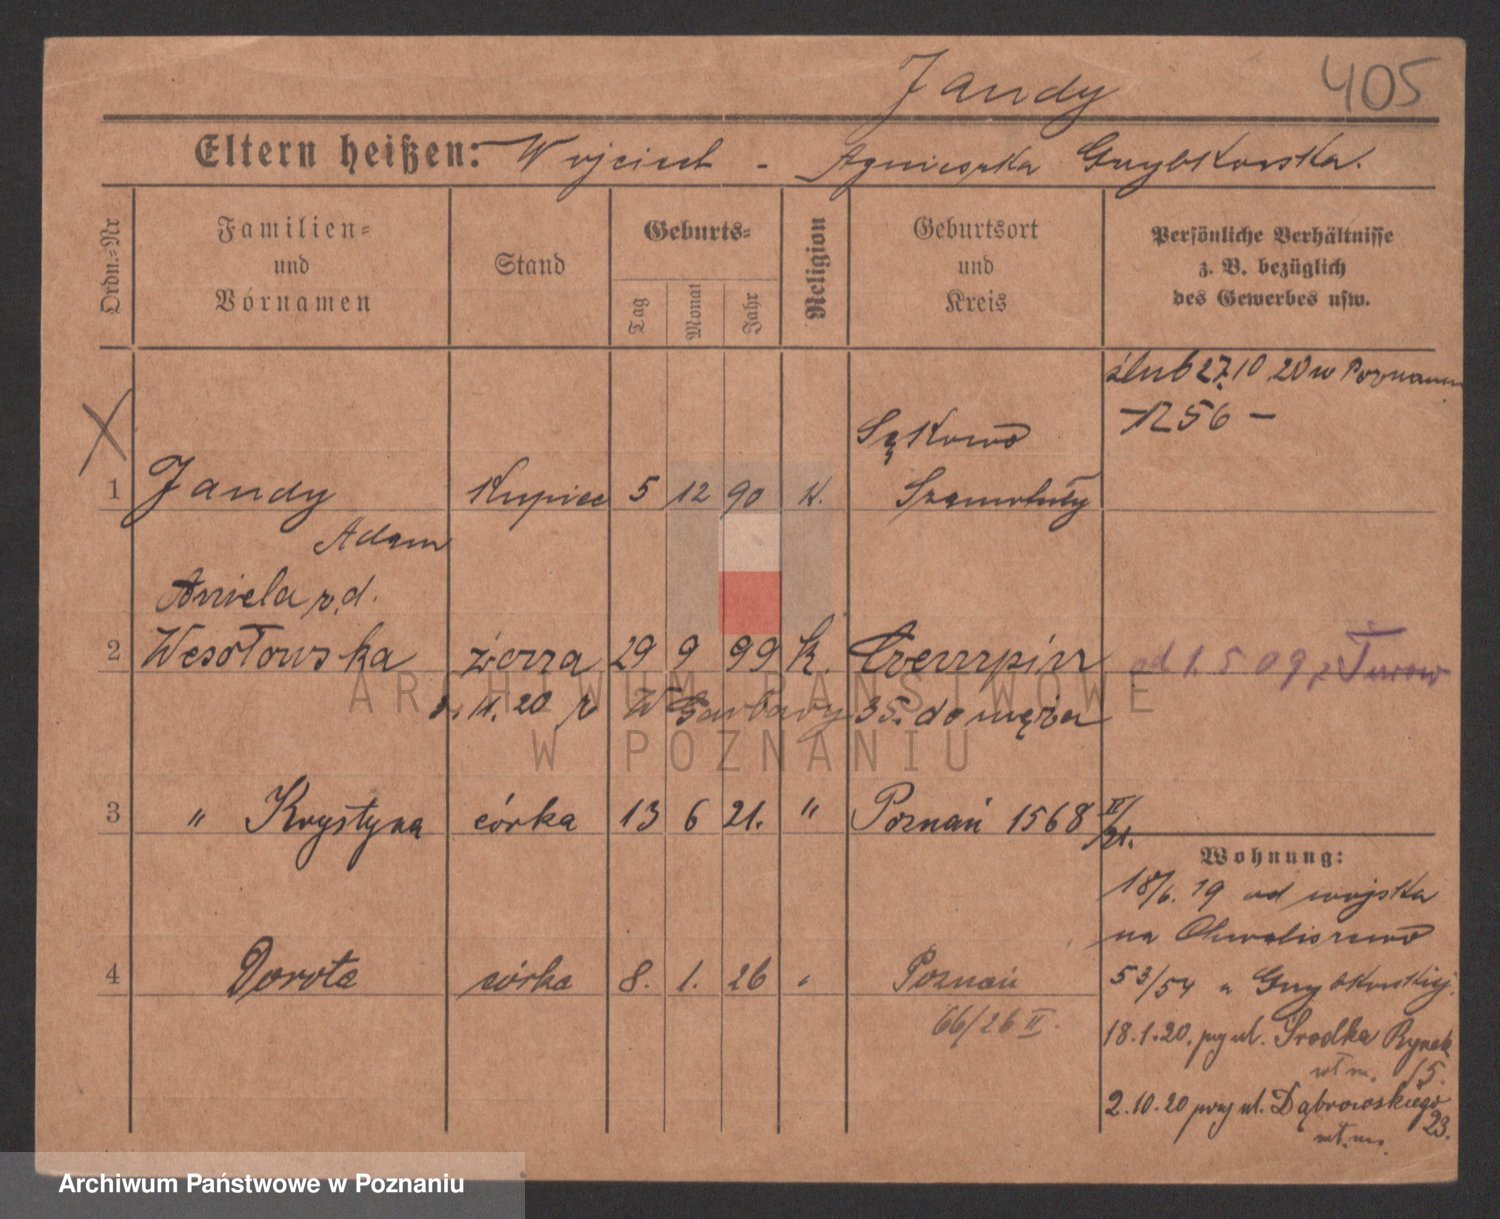 Jandy 405
Eltern heißen: Wojciech - Agnieszka Grzybkowska.
Ordn.-Nr
Familien-
und
Vornamen
Stand
Geburts-
Tag
Monat
Jahr
Religion
Geburtsort
und
Kreis
Persönliche Verhältnisse
z. B. bezüglich
des Gewerbes usw.
ślub 27.10 20 w Poznaniu
-1256-
Sękowo
1 Jandy Kupiec 5 12 90 K. Szamotuły
Adam
Aniela r.d.
2 Wesołowska żona 29 9 99 K. Czempiń od 1.5 09 z
11.20 z W Garbary 35. do męża
3 " Krystyna córka 13 6 21. " Poznań 1568 II/21.
Wohnung:
18/6. 19 od wojska
na Chwaliszewo
4 Dorota córka 8. 1. 26 " Poznań
66/26 II.
53/54 u Grzybkowskiej.
18.1.20. przy ul. Środka Rynek
wł m. 15.
2.10.20 przy ul. Dąbrowskiego
23.
wł. m.
ARCHIWUM PAŃSTWOWE
W POZNANIU
Archiwum Państwowe w Poznaniu